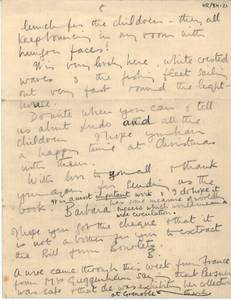 8
lunch for the children – they all
keep bouncing in my room with
hungry faces!
It is very lovely here. white crested
waves & the fishing fleet sailing
out very fast round the light-
house.
Do write when you can & tell
us about Ludo and all the
children & I hope you have
a happy time at Christmas
with them.
With love to you all & thank
you again for lending us the
book
important work & I do hope it
Barbara has some means of
wide circulation.
I hope you got the cheque & that it
is not a bother for you to extract
the Bill from
A wire came this week from France
from Mrs Guggenheim say that
was safe that she was exhibiting her collection
at Grenoble